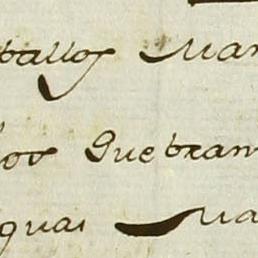 ballos Man
los Quebran
guas Ma